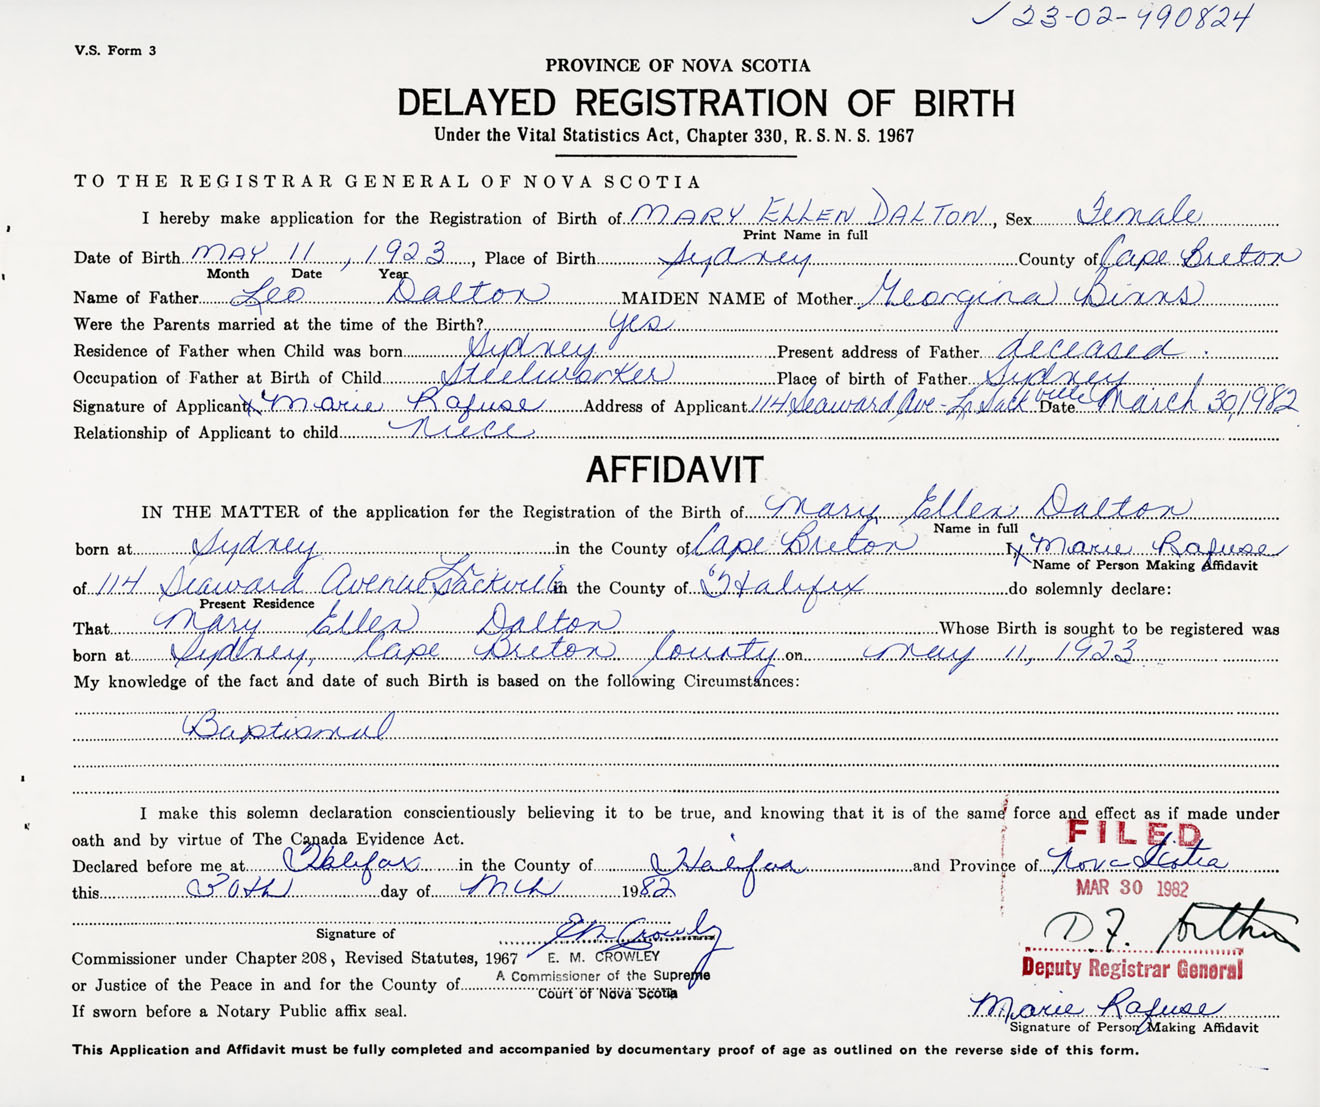 ✓ 23-02-490824
V.S. Form 3
PROVINCE OF NOVA SCOTIA
DELAYED REGISTRATION OF BIRTH
Under the Vital Statistics Act, Chapter 330, R. S. N. S. 1967
TO THE REGISTRAR GENERAL OF NOVA SCOTIA
I hereby make application for the Registration of Birth of MARY ELLEN DALTON, Sex Female
Print Name in full
Date of Birth MAY 11, 1923, Place of Birth Sydney County of Cape Breton
Month Date Year
Name of Father Leo Dalton MAIDEN NAME of Mother Georgina Binns
Were the Parents married at the time of the Birth? yes
Residence of Father when Child was born Sydney Present address of Father deceased.
Occupation of Father at Birth of Child Steelworker Place of birth of Father Sydney
Signature of Applicant x Marie Rafuse Address of Applicant 114 Seaward Ave - Lr Sackville Date March 30, 1982
Relationship of Applicant to child niece
AFFIDAVIT
IN THE MATTER of the application for the Registration of the Birth of Mary Ellen Dalton
Name in full
born at Sydney in the County of Cape Breton I, x Marie Rafuse
Name of Person Making Affidavit
of 114 Seaward Avenue Lr Sackville in the County of Halifax do solemnly declare:
Present Residence
That Mary Ellen Dalton Whose Birth is sought to be registered was
born at Sydney, Cape Breton County on May 11, 1923
My knowledge of the fact and date of such Birth is based on the following Circumstances:
Baptismal
I make this solemn declaration conscientiously believing it to be true, and knowing that it is of the same force and effect as if made under
oath and by virtue of The Canada Evidence Act.
FILED
Declared before me at Halifax in the County of Halifax and Province of Nova Scotia
this 30th day of Mch 1982
MAR 30 1982
Signature of EM Crowley
D.F. Arthur
Commissioner under Chapter 208, Revised Statutes, 1967 E. M. CROWLEY
Deputy Registrar General
A Commissioner of the Supreme
or Justice of the Peace in and for the County of
Court of Nova Scotia
Marie Rafuse
If sworn before a Notary Public affix seal.
Signature of Person Making Affidavit
This Application and Affidavit must be fully completed and accompanied by documentary proof of age as outlined on the reverse side of this form.